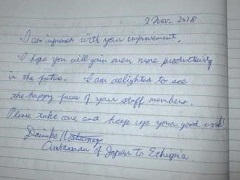 2 Nov. 2018
I am impressed with your improvement.
I hope you will gain even more productivity
in the future. I am delighted to see
the happy faces of your staff members.
Please take care and keep up your good work!
Ambassador of Japan to Ethiopia